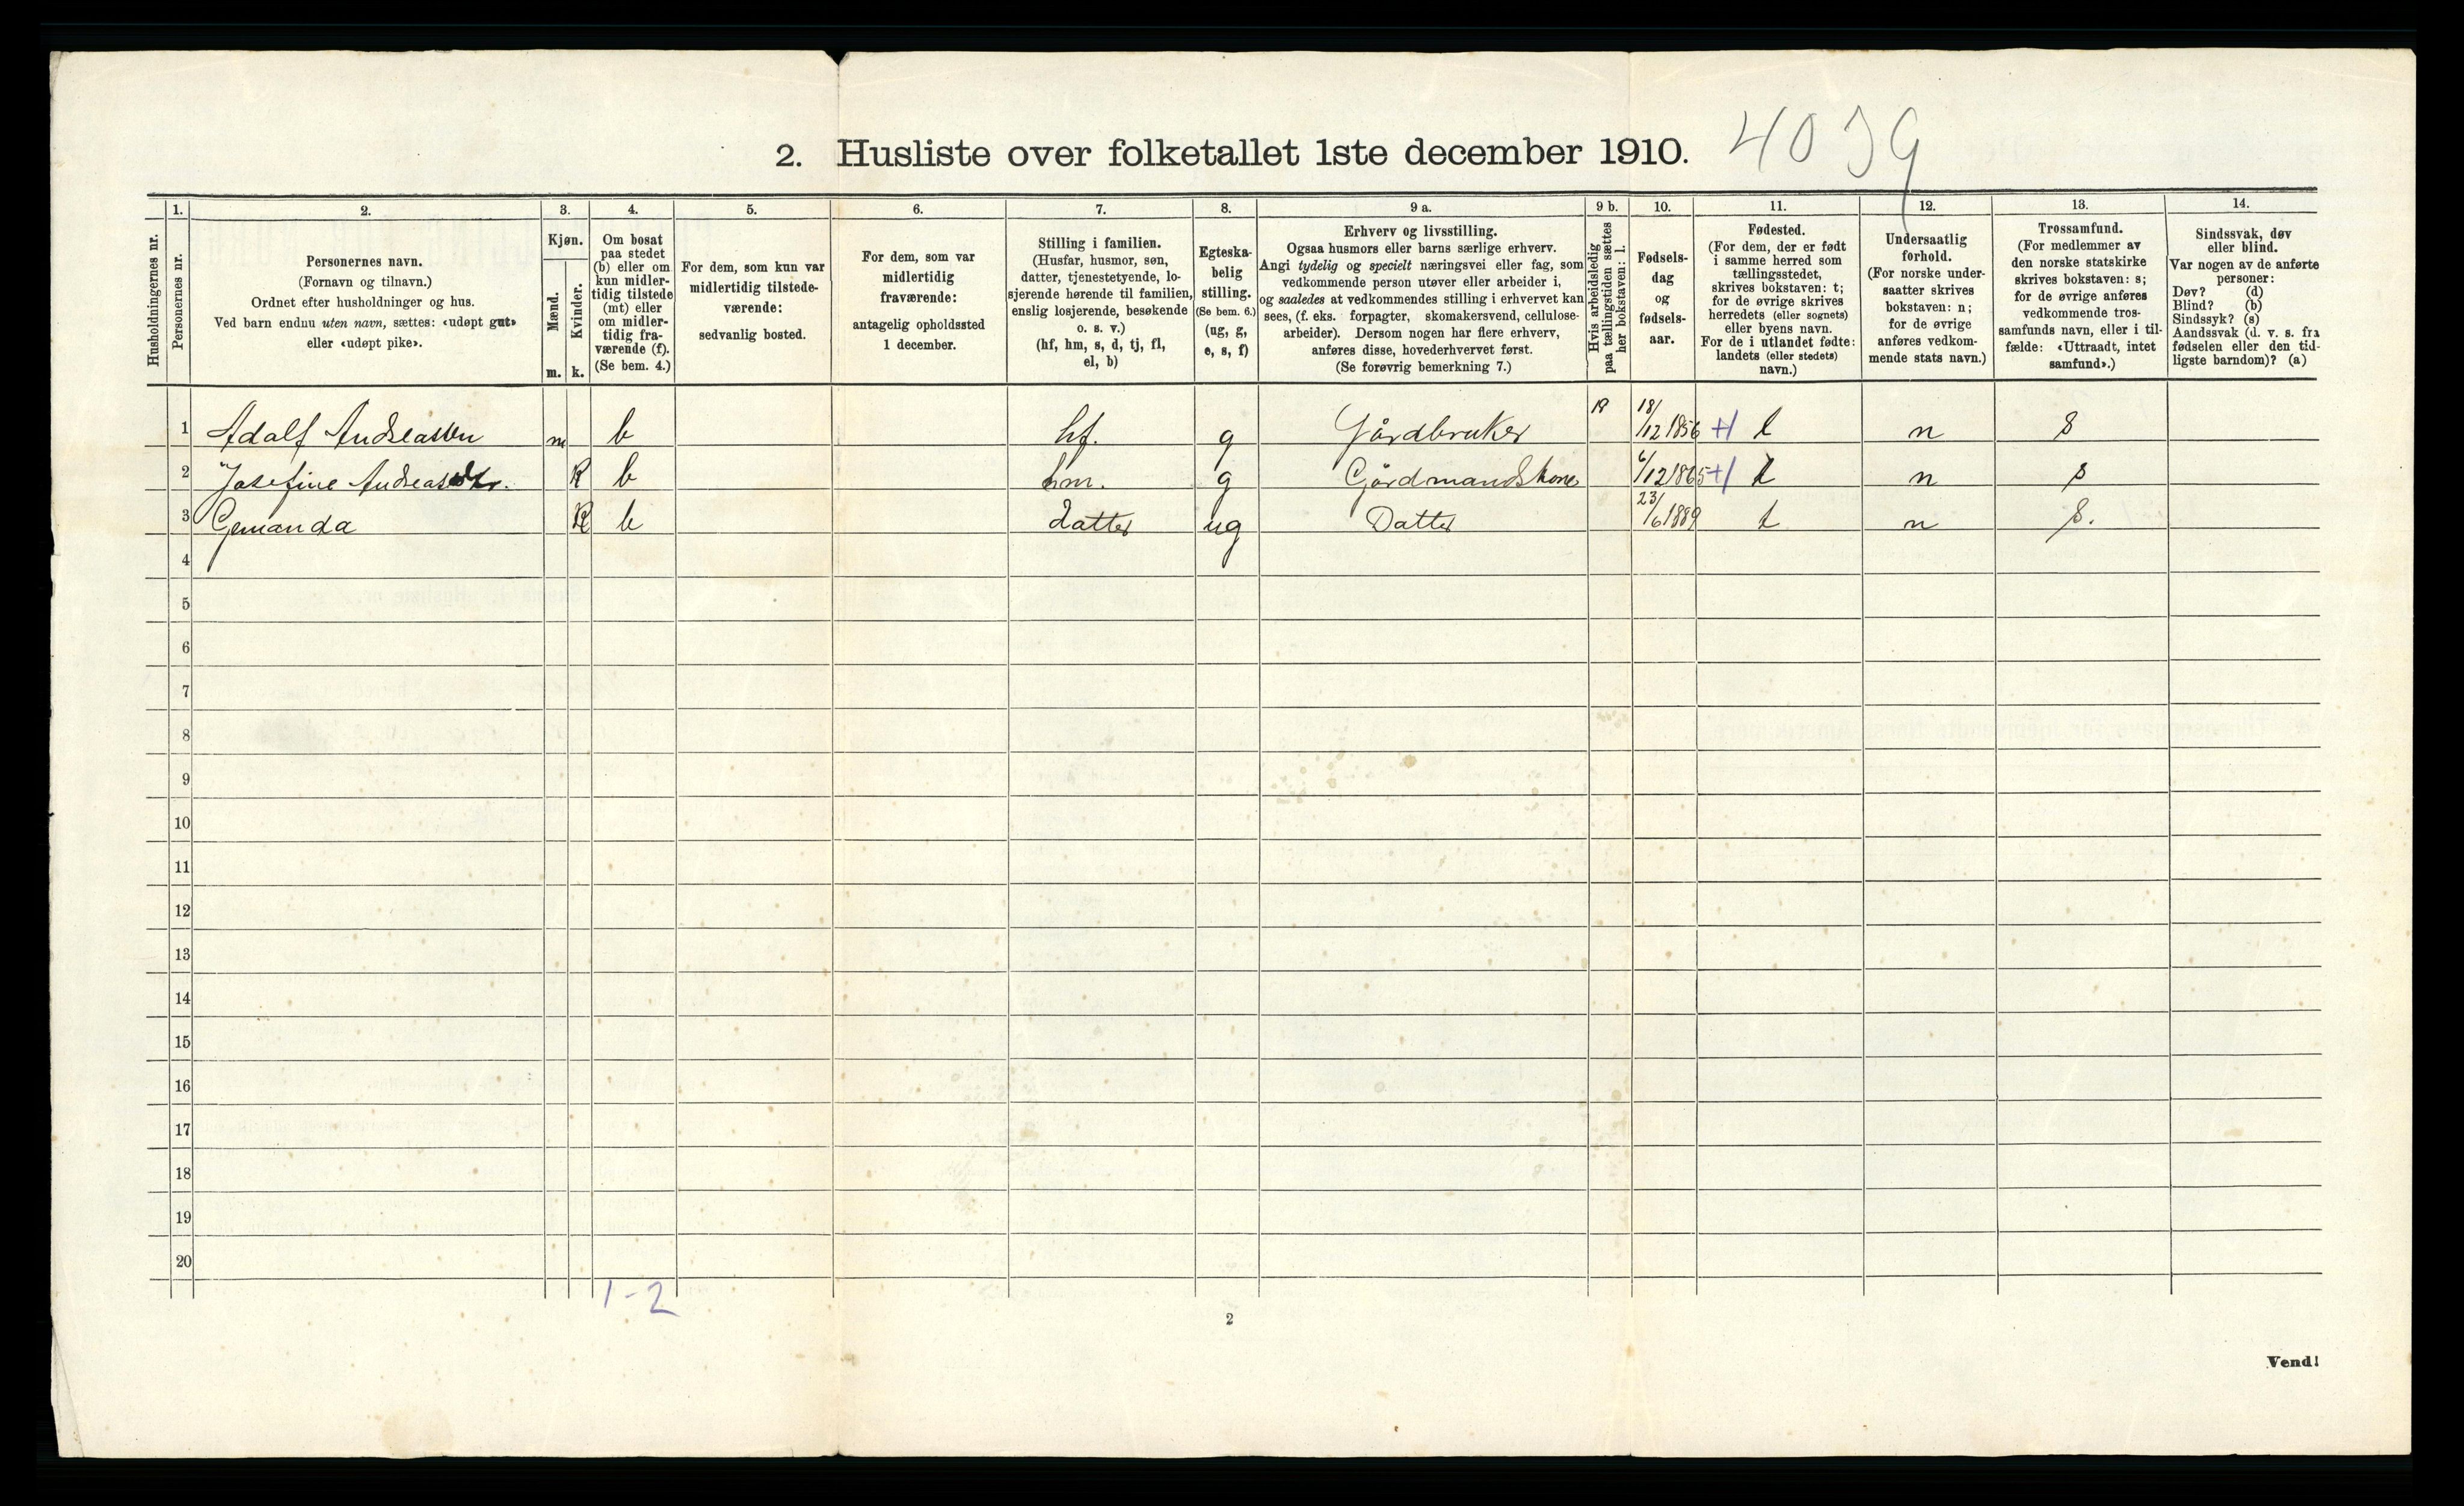 2. Husliste over folketallet 1ste december 1910. 4039
Husholdningernes nr.
1.
Personernes nr.
2.
Personernes navn.
(Fornavn og tilnavn.)
Ordnet efter husholdninger og hus.
Ved barn endnu uten navn, sættes: «udøpt gut»
eller «udøpt pike».
3.
Kjøn.
Mænd.
Kvinder.
m. k.
4.
Om bosat
paa stedet
(b) eller om
kun midler-
tidig tilstede
(mt) eller
om midler-
tidig fra-
værende (f).
(Se bem. 4.)
5.
For dem, som kun var
midlertidig tilstede-
værende:
sedvanlig bosted.
6.
For dem, som var
midlertidig
fraværende:
antagelig opholdssted
1 december.
7.
Stilling i familien.
(Husfar, husmor, søn,
datter, tjenestetyende, lo-
sjerende hørende til familien,
enslig losjerende, besøkende
o. s. v.)
(hf, hm, s, d, tj, fl,
el, b)
8.
Egteska-
belig
stilling.
(Se bem. 6.)
(ug, g,
e, s, f)
9 a.
Erhverv og livsstilling.
Ogsaa husmors eller barns særlige erhverv.
Angi tydelig og specielt næringsvei eller fag, som
vedkommende person utøver eller arbeider i,
og saaledes at vedkommendes stilling i erhvervet kan
sees, (f. eks. forpagter, skomakersvend, cellulose-
arbeider). Dersom nogen har flere erhverv,
anføres disse, hovederhvervet først.
(Se forøvrig bemerkning 7.)
9 b.
Hvis arbeidsledig
paa tællingstiden sættes
her bokstaven: l.
10.
Fødsels-
dag
og
fødsels-
aar.
11.
Fødested.
(For dem, der er født
i samme herred som
tællingsstedet,
skrives bokstaven: t;
for de øvrige skrives
herredets (eller sognets)
eller byens navn.
For de i utlandet fødte:
landets (eller stedets)
navn.)
12.
Undersaatlig
forhold.
(For norske under-
saatter skrives
bokstaven: n;
for de øvrige
anføres vedkom-
mende stats navn.)
13.
Trossamfund.
(For medlemmer av
den norske statskirke
skrives bokstaven: s;
for de øvrige anføres
vedkommende tros-
samfunds navn, eller i til-
fælde: «Uttraadt, intet
samfund».)
14.
Sindssvak, døv
eller blind.
Var nogen av de anførte
personer:
Døv? (d)
Blind? (b)
Sindssyk? (s)
Aandssvak (d. v. s. fra
fødselen eller den tid-
ligste barndom)? (a)
1 Adalf Andreassen m b hf. g Gårdbruker 18/12 1856 +1 t n S
2 Josefine K b hm. g Gårdmandskone 6/12 1865 +1 t n s
3 K b datter ug Datter 23/6 1889 t n S.
4
5
6
7
8
9
10
11
12
13
14
15
16
17
18
19
20
1-2
2
Vend!